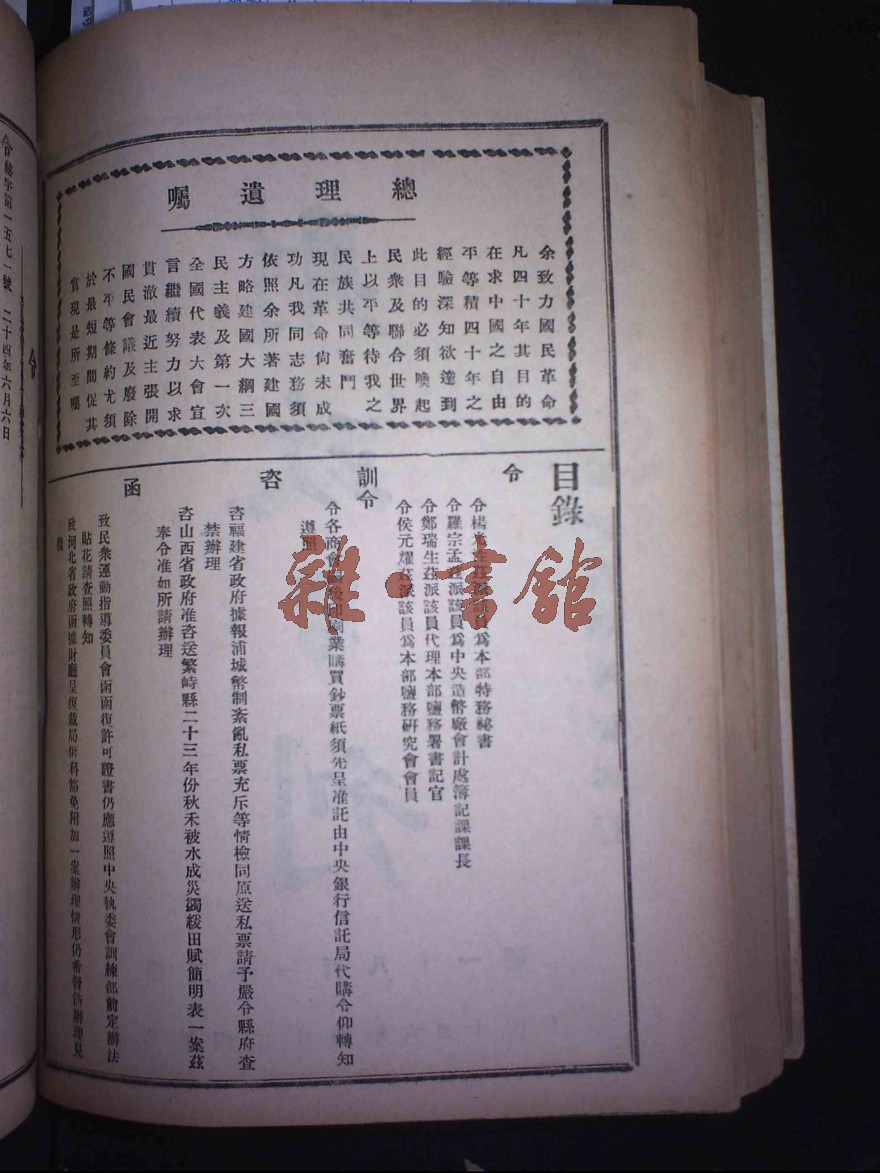 總理遺囑
余致力國民革命
凡四十年其目的
在求中國之自由
平等積四十年之
經驗深知欲達到
此目的必須喚起
民衆及聯合世界
上以平等待我之
民族共同奮鬥
現在革命尙未成
功凡我同志務須
依照余所著建國
方略建國大綱三
民主義及第一次
全國代表大會宣
言繼續努力以求
貫澈最近主張開
國民會議及廢除
不平等條約尤須
於最短期間促其
實現是所至囑
目錄
令
令楊 茲派該員爲本部特務秘書
令羅宗孟茲派該員爲中央造幣廠會計處簿記課課長
令鄭瑞生茲派該員代理本部鹽務署書記官
令侯元耀茲派該員爲本部鹽務研究會會員
訓令
令各商會 印刷業購買鈔票紙須先呈准託由中央銀行信託局代購令仰轉知
遵照
咨
咨福建省政府據報浦城幣制紊亂私票充斥等情檢同原送私票請予嚴令縣府查
禁辦理
咨山西省政府准咨送繁峙縣二十三年份秋禾被水成災蠲緩田賦簡明表一案茲
奉令准如所請辦理
函
致民衆運動指導委員會函函復許可證書仍應遵照中央執委會訓練部前定辦法
貼花請查照轉知
致河北省政府函據財廳呈復裁局併科豁免附加一案辦理情形仍希督飭辦理見
復
令
令 字第一五七一號 二十四年六月六日
雜·書館